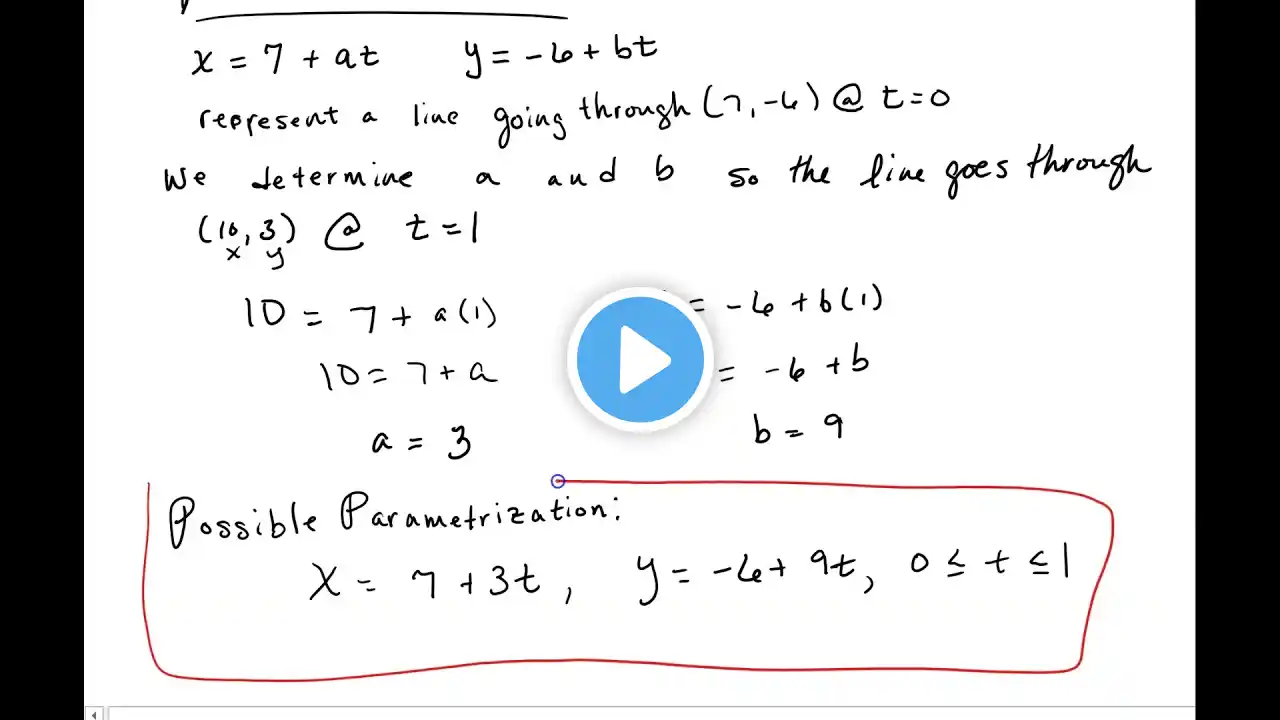 x = 7 + at y = -6 + bt
represent a line going through (7, -6) @ t = 0
We determine a and b so the line goes through
(10, 3) @ t = 1
x y
10 = 7 + a(1) = -6 + b(1)
10 = 7 + a = -6 + b
a = 3 b = 9
Possible Parametrization:
x = 7 + 3t, y = -6 + 9t, 0 ≤ t ≤ 1